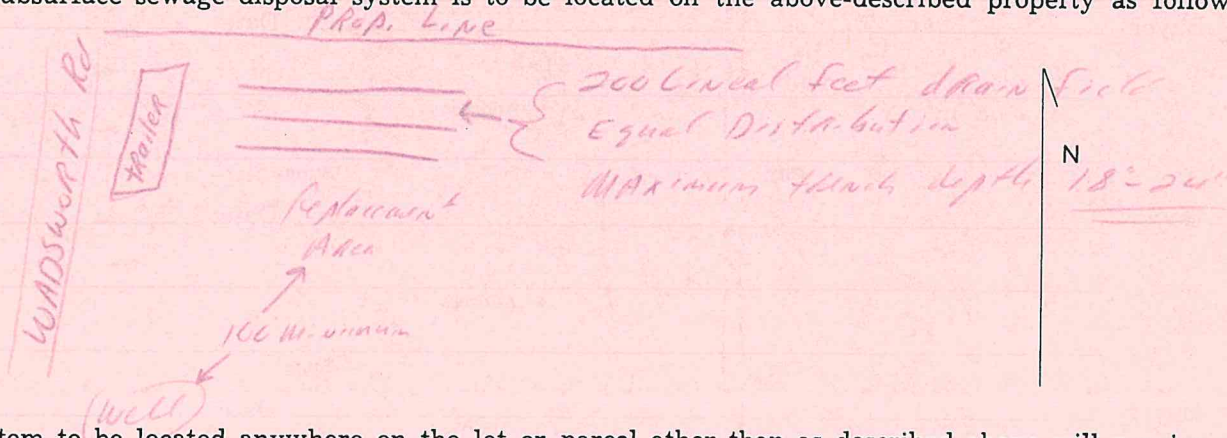 absurface sewage disposal system is to be located on the above-described property as follow
PROP. LINE
WADSWORTH Rd
TRAILER
200 Lineal feet drain field
Equal Distribution
MAXIMUM trench depth 18"-24"
N
Replacement
Area
100 Minimum
(Well)
tem to be located anywhere on the lot or parcel other than as described above will